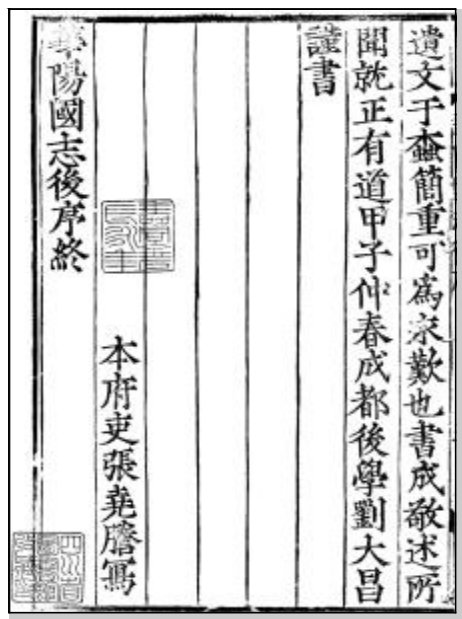 遺文于蠹簡重可爲永歎也書成敬述所
聞就正有道甲子仲春成都後學劉大昌
謹書
本府吏張堯謄寫
華陽國志後序終